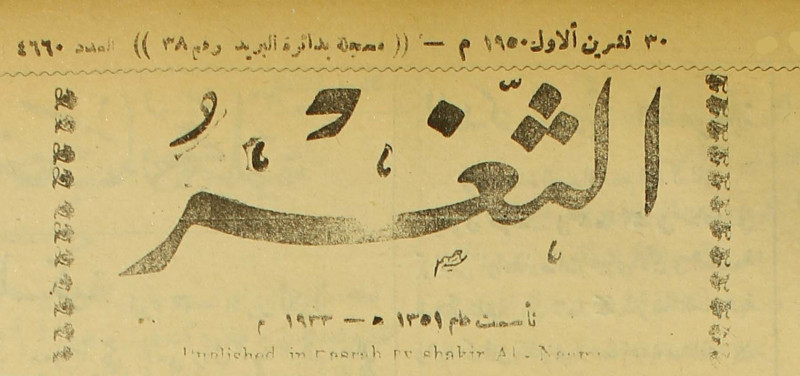 ٣٠ تشرين ألاول ١٩٥٠ م — (( مسجلة بدائرة البريد رقم ٣٨ )) العدد ٤٦٦٠
الثَّغْرُ
تأسست عام ١٣٥١ ه — ١٩٣٣ م
Published in Basrah by Shakir Al - Naama